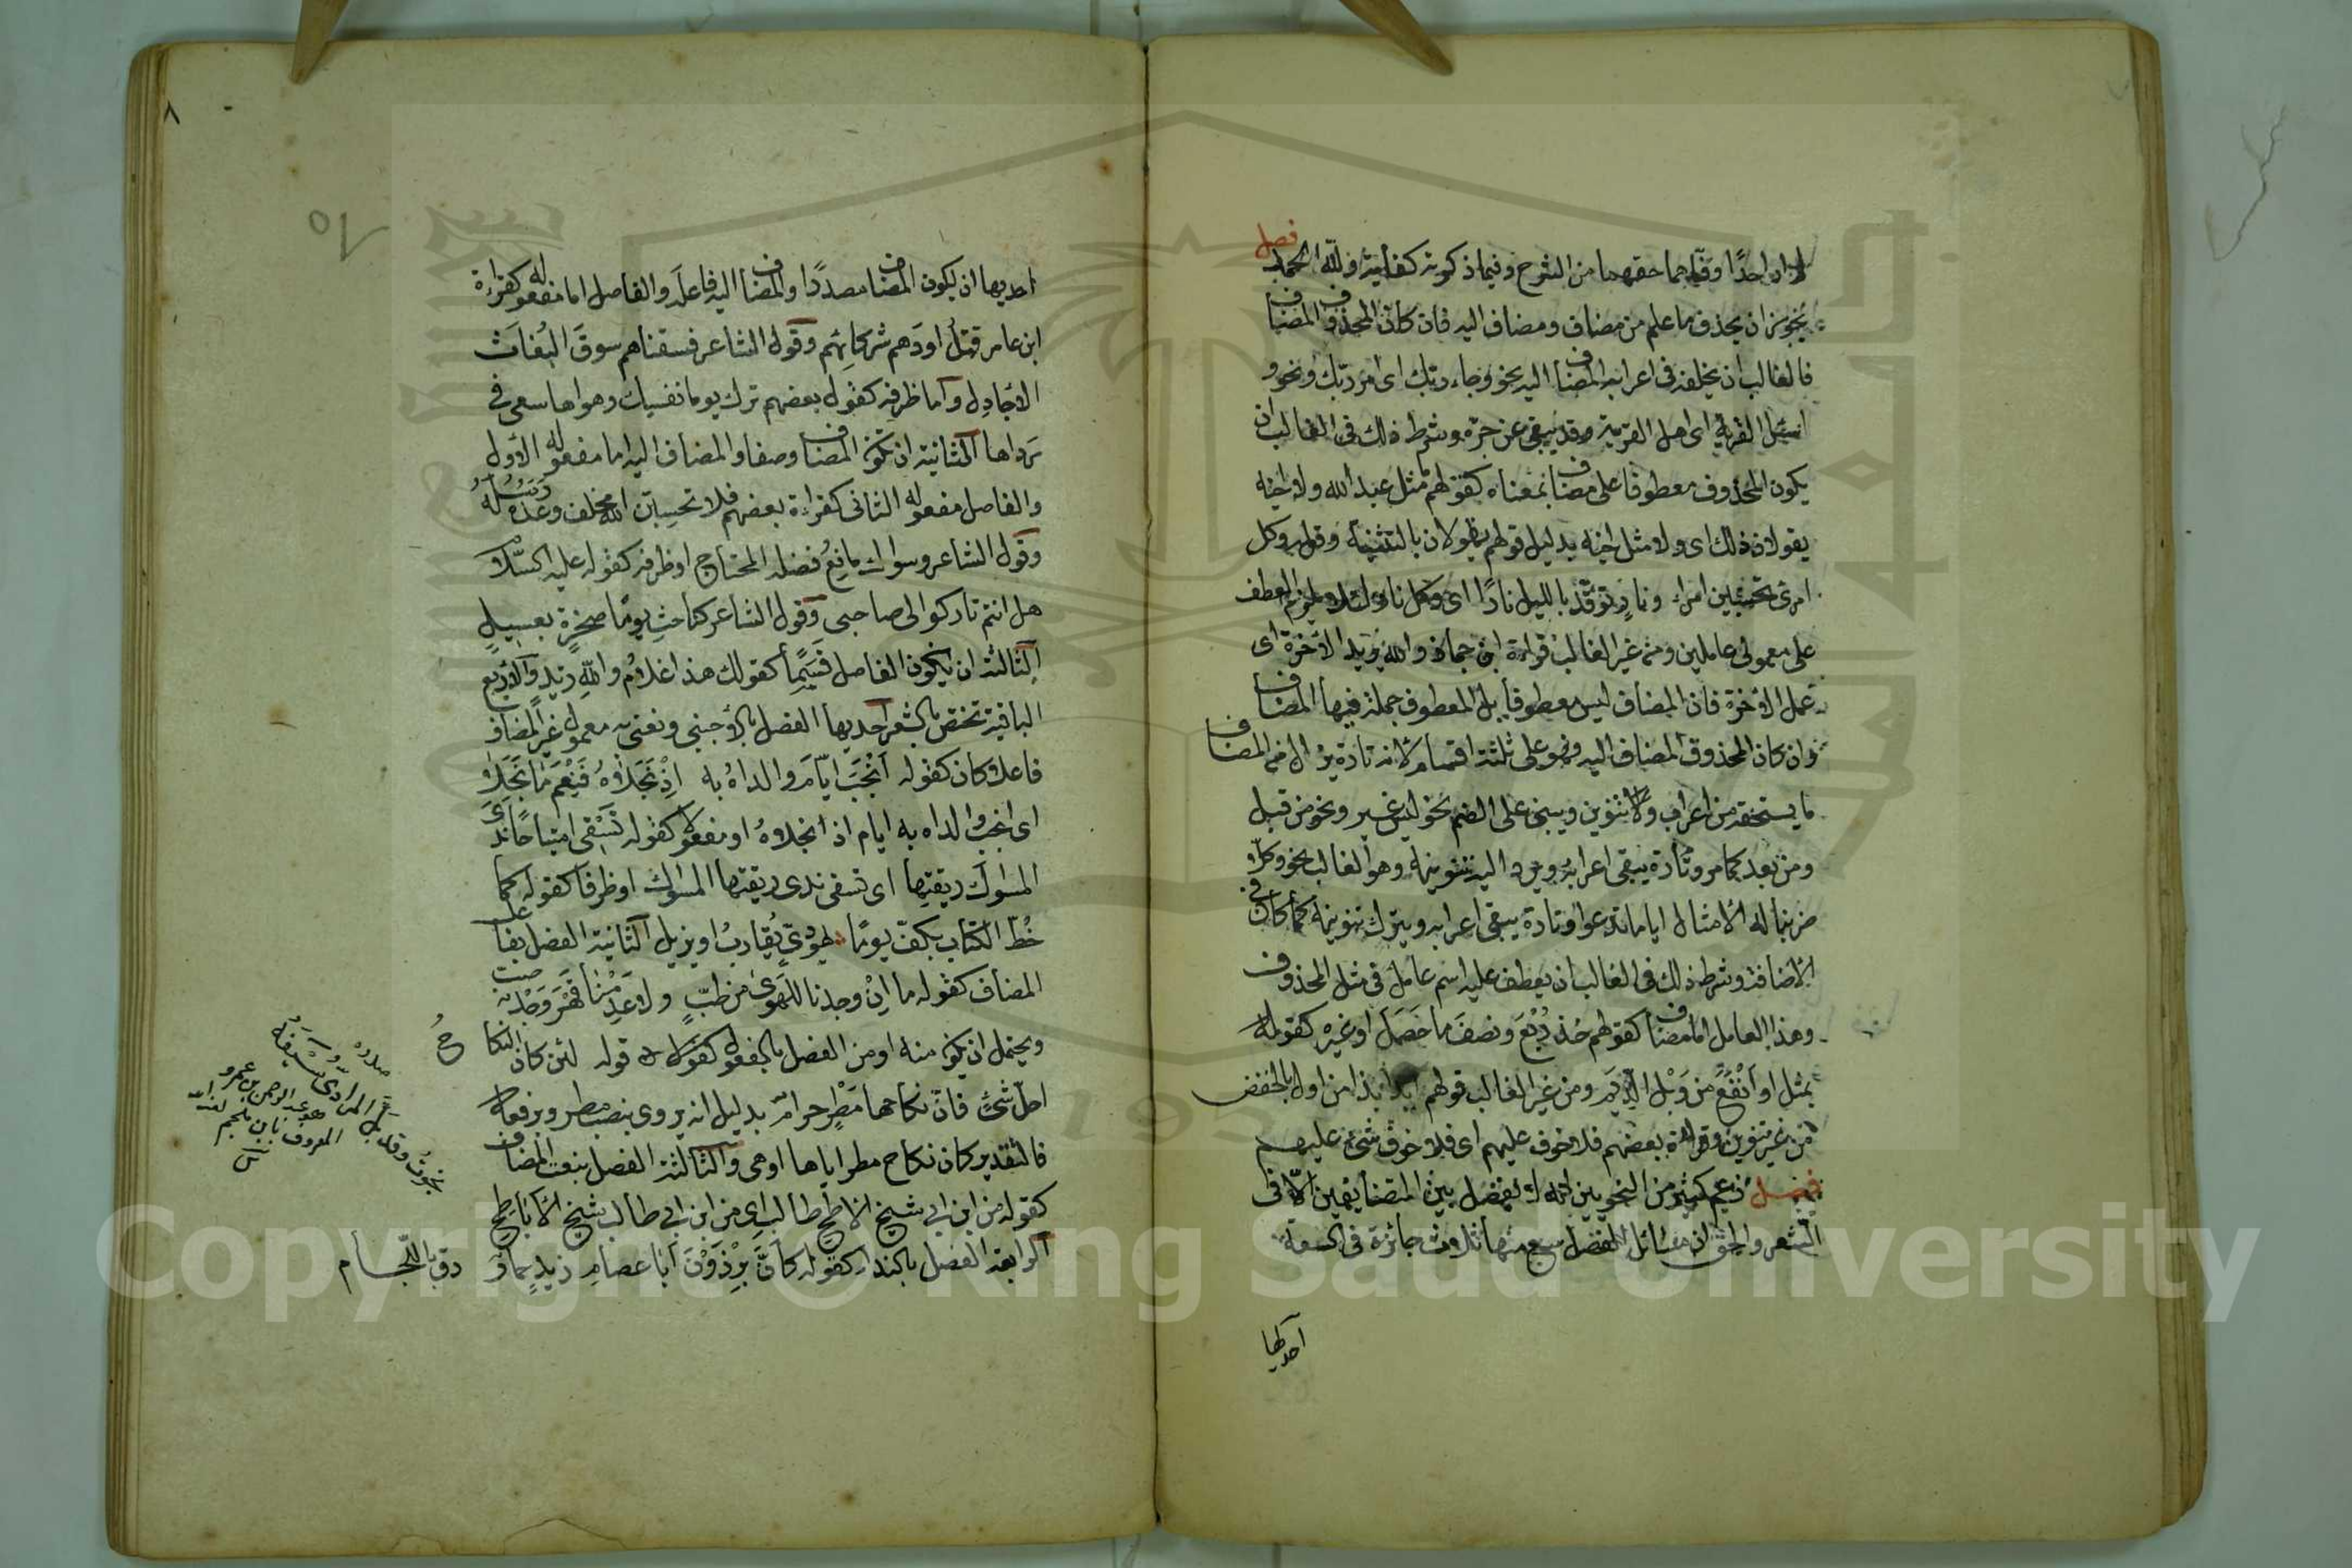 لا ان احدًا وفّاهما حقهما من الشرح وفيما ذكرته كفاية ولله الحمد فصل
يجوز ان يحذف ما علم من مضاف ومضاف اليه فان كان المحذوف المضاف
فالغالب ان يخلفه فى اعرابه المضاف اليه نحو وجاء ربك اى امر ربك ونحو و
اسئل القرية اى اهل القرية وقد يبقى على جرّه وشرط ذلك فى الغالب ان
يكون المحذوف معطوفا على مضاف بمعناه كقولهم مثل عبد الله ولا اخيه
يقولان ذلك اى ولا مثل اخيه بدليل قولهم يقولان بالتثنية وقوله وكل
امرئ تحسبين امرء ونارٍ توقّد بالليل نارًا اى وكل نار لئلا يلزم العطف
على معمولى عاملين ومن غير الغالب قراءة ابن جماز والله يريد الآخرة اى
عمل الآخرة فان المضاف ليس معطوفا بل المعطوف جملة فيها المضاف
وان كان المحذوف المضاف اليه فهو على ثلثة اقسام لانه تارة يزال من المضاف
ما يستحقه من اعراب وتنوين ويبنى على الضم نحو ليس غير ونحو من قبل
ومن بعد كما مر وتارة يبقى اعرابه ويرد اليه تنوينه وهو الغالب نحو وكلاّ
ضربنا له الامثال اياما تدعوا وتارة يبقى اعرابه ويترك تنوينه كما كان فى
الاضافة وشرط ذلك فى الغالب ان يعطف عليه اسم عامل فى مثل المحذوف
وهذا العامل اما مضاف كقولهم خذ رُبُعَ ونصفَ ما حَصَلَ او غيره كقوله
بمثل او اَنْفَعَ من وَبْل الدِّيَم ومن غير الغالب قولهم ابدا بذا من اول بالخفض
من غير تنوين وقراءة بعضهم فلا خوف عليهم اى فلا خوف شئ عليهم
فصل زعم كثير من النحويين انه لا يفصل بين المتضايفين الاّ فى
الشعر والحق ان مسائل الفصل سبع منها ثلاث جائزة فى السعة
احديها
٨
احديها ان يكون المضاف مصدرًا والمضاف اليه فاعله والفاصل اما مفعوله كقراءة
ابن عامر قتلُ اولادَهم شركائِهم وقول الشاعر فسقناهم سوقَ البُغاثَ
الاجادِل واما ظرفه كقول بعضهم ترك يوما نفسِك وهواها سعى فى
رداها الثانية ان يكون المضاف وصفا والمضاف اليه اما مفعوله الاول
والفاصل مفعوله الثانى كقراءة بعضهم فلا تحسبنّ الله مخلف وعدَه رسلِه
وقول الشاعر وسواك مانعُ فضلَه المحتاجِ او ظرفه كقوله عليه السّلام
هل انتم تاركوا لى صاحبى وقول الشاعر كناحتِ يومًا صخرةٍ بعسيلٍ
الثالثة ان يكون الفاصل قسَمًا كقولك هذا غلامُ واللهِ زيدٍ والاربع
الباقية تختص بالشعر احديها الفصل بالاجنبى ونعنى به معمول غير المضاف
فاعلا كان كقوله اَنْجَبَ ايّامَ والداهُ به اِذْ نَجَلاهُ فَنِعْمَ ما نَجَلا
اى انجب والداه به ايام اذ نجلاهُ او مفعولا كقوله تَسْقِى امتياحًا نَدَى
المسواكَ ريقتِها اى تسقى ندى ريقتها المسواك او ظرفا كقوله كما
خُطّ الكتاب بكفّ يومًا يهودىٍّ يُقارب او يزيل الثانية الفصل بفاعل
المضاف كقوله ما اِنْ وجدنا للهوى من طبٍّ ولا عَدِمْنا قَهْرَ وَجْدٌ صب
ويحتمل ان يكون منه او من الفصل بالمفعول قوله لئن كان النكاح
احل شئ فانّ نكاحها مَطَرٍ حرامٌ بدليل انه يروى بنصب مطر وبرفعه
فالتقدير كان نكاح مطر اياها او هى والثالثة الفصل بنعت المضاف
كقوله من ابن ابى شيخ الاباطح طالب اى من ابن ابى طالب شيخ الاباطح
الرابعة الفصل بالنداء كقوله كأنّ بِرْذَوْنَ ابا عصامِ زيدٍ حمارٌ دق باللّجام
نجوتُ وقد بلّ المرادى سيفَهُ
هو عبد الرحمن بن عمرو
المعروف بابن ملجم لعنه الله